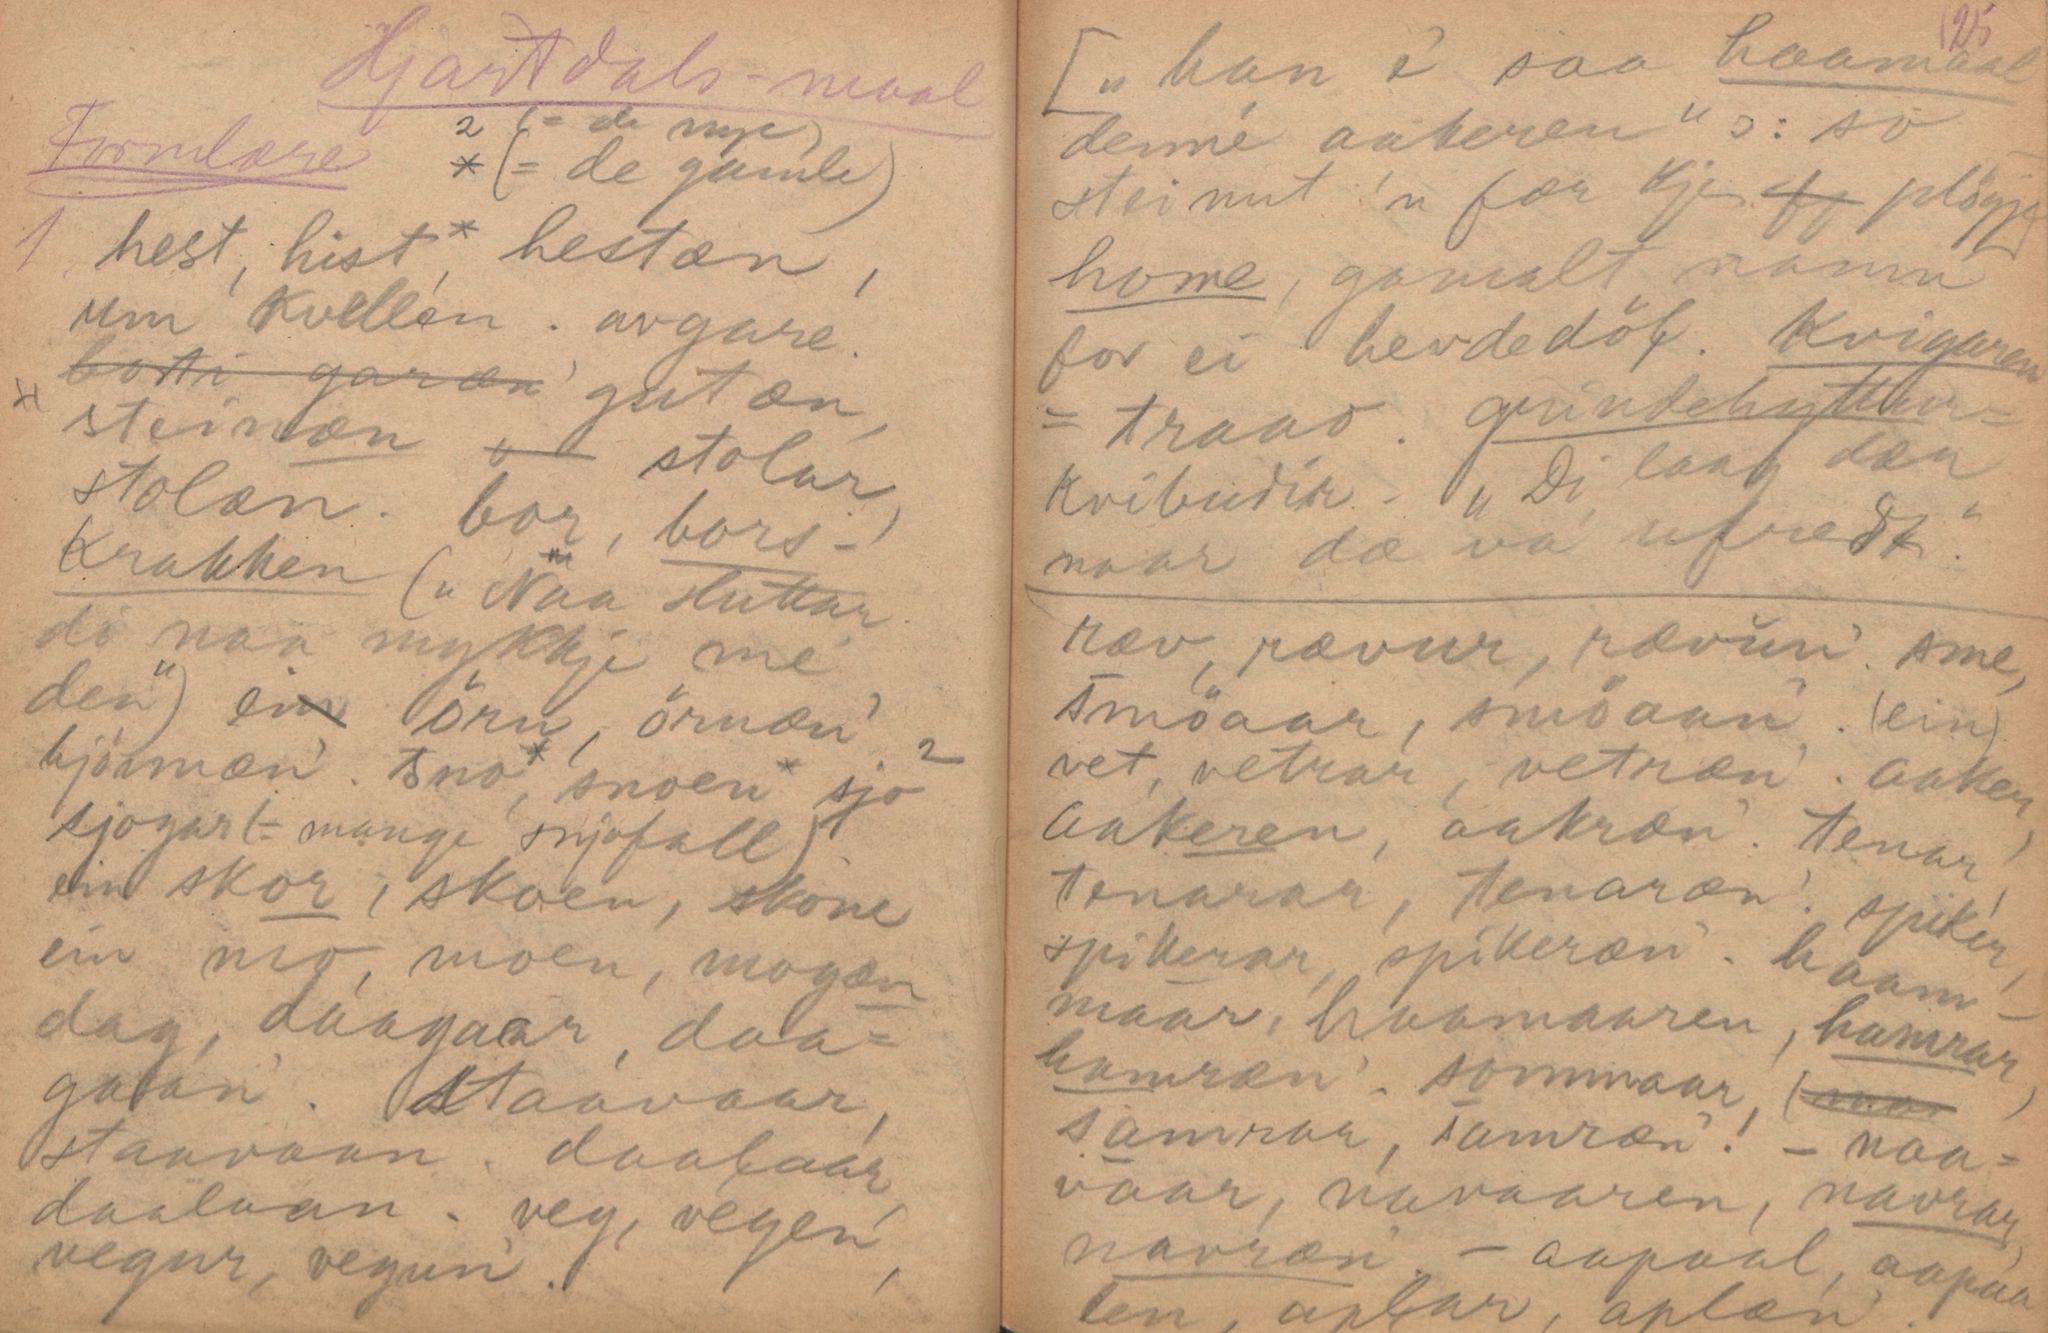 Hjartdals-maal
Formlære
2 (= de nye)
* (= de gamle)
1. hest, hist*, hestæn,
um kvellen. avgare.
botti garæn gutæn,
steinæn stolar,
stolæn. bor, bors-
krakken („Naa sluttar
di naa mykkje me
den") ein örn, örnæn
bjönnæn. sno*, snoen* sjo 2
sjogar (= mange snjofall)
ein skor, skoen, skone
ein mo, moen, mogæn
dag, daagaar, daa=
gaan. staavaar,
staavaan. daalaar,
daalaan. veg, vegen,
vegur, vegun.
125
[„han e saa haamaal
denne aakeren" ɔ: so
steinut 'n fær kje plögje]
home, gamalt namn
for ei hevdedöl. Kvigaren
= traao. grindehyttur=
kvibudir - „Di laag dæn
naar dæ va ufredt."
ræv, rævur, rævun. sme,
smöaar, smöaan. (ein)
vet, vetrar, vetræn. aaker,
aakeren, aakræn. tenar,
tenarar, tenaræn. spiker,
spikerar, spikeræn. haam-
maar, haamaaren, hamrar,
hamræn. sommaar,
samrar, samræn. - naa=
vaar, navaaren, navrar,
navræn. - aapaal, aapaa
len, aplar, aplæn.